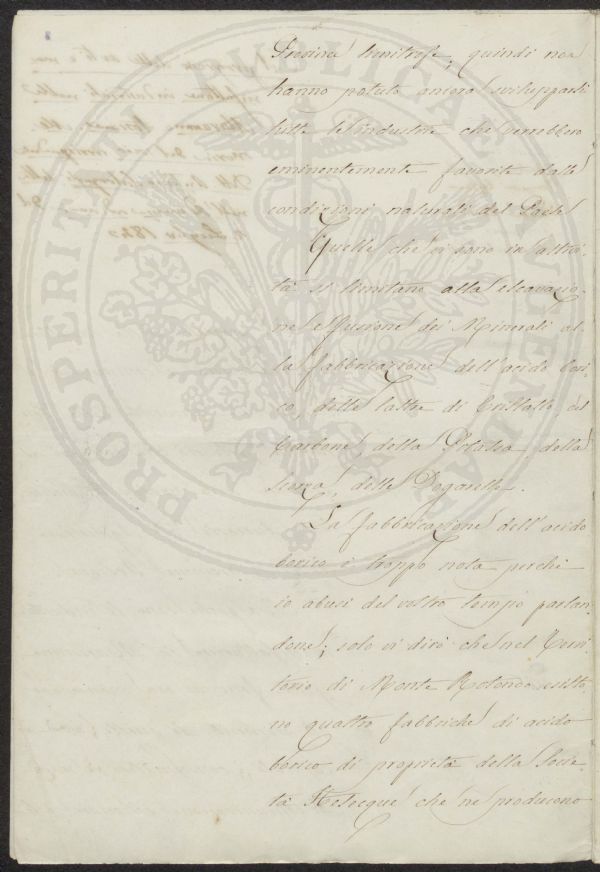 Provincie limitrofe, quindi non
hanno potuto ancora svilupparsi
tutte le industrie che verrebbero
eminentemente favorite dalle
condizioni naturali del Paese
Quelle che vi sono in attivi-
tà si limitano alla escavazio-
ne e fusione dei Minerali al-
la fabbricazione dell'acido Bori-
co, delle lastre di Cristallo del
Carbone della Potassa della
scorza, delle Dogarelle.
La fabbricazione dell'acido
borico è troppo nota perché
io abusi del vostro tempo parlan-
done; solo vi dirò che nel Terri-
torio di Monte Rotondo esisto
no quattro fabbriche di acido
borico di proprietà della Socie
tà che ne producono
PROSPERITATI PUBLICAE AUGENDAE